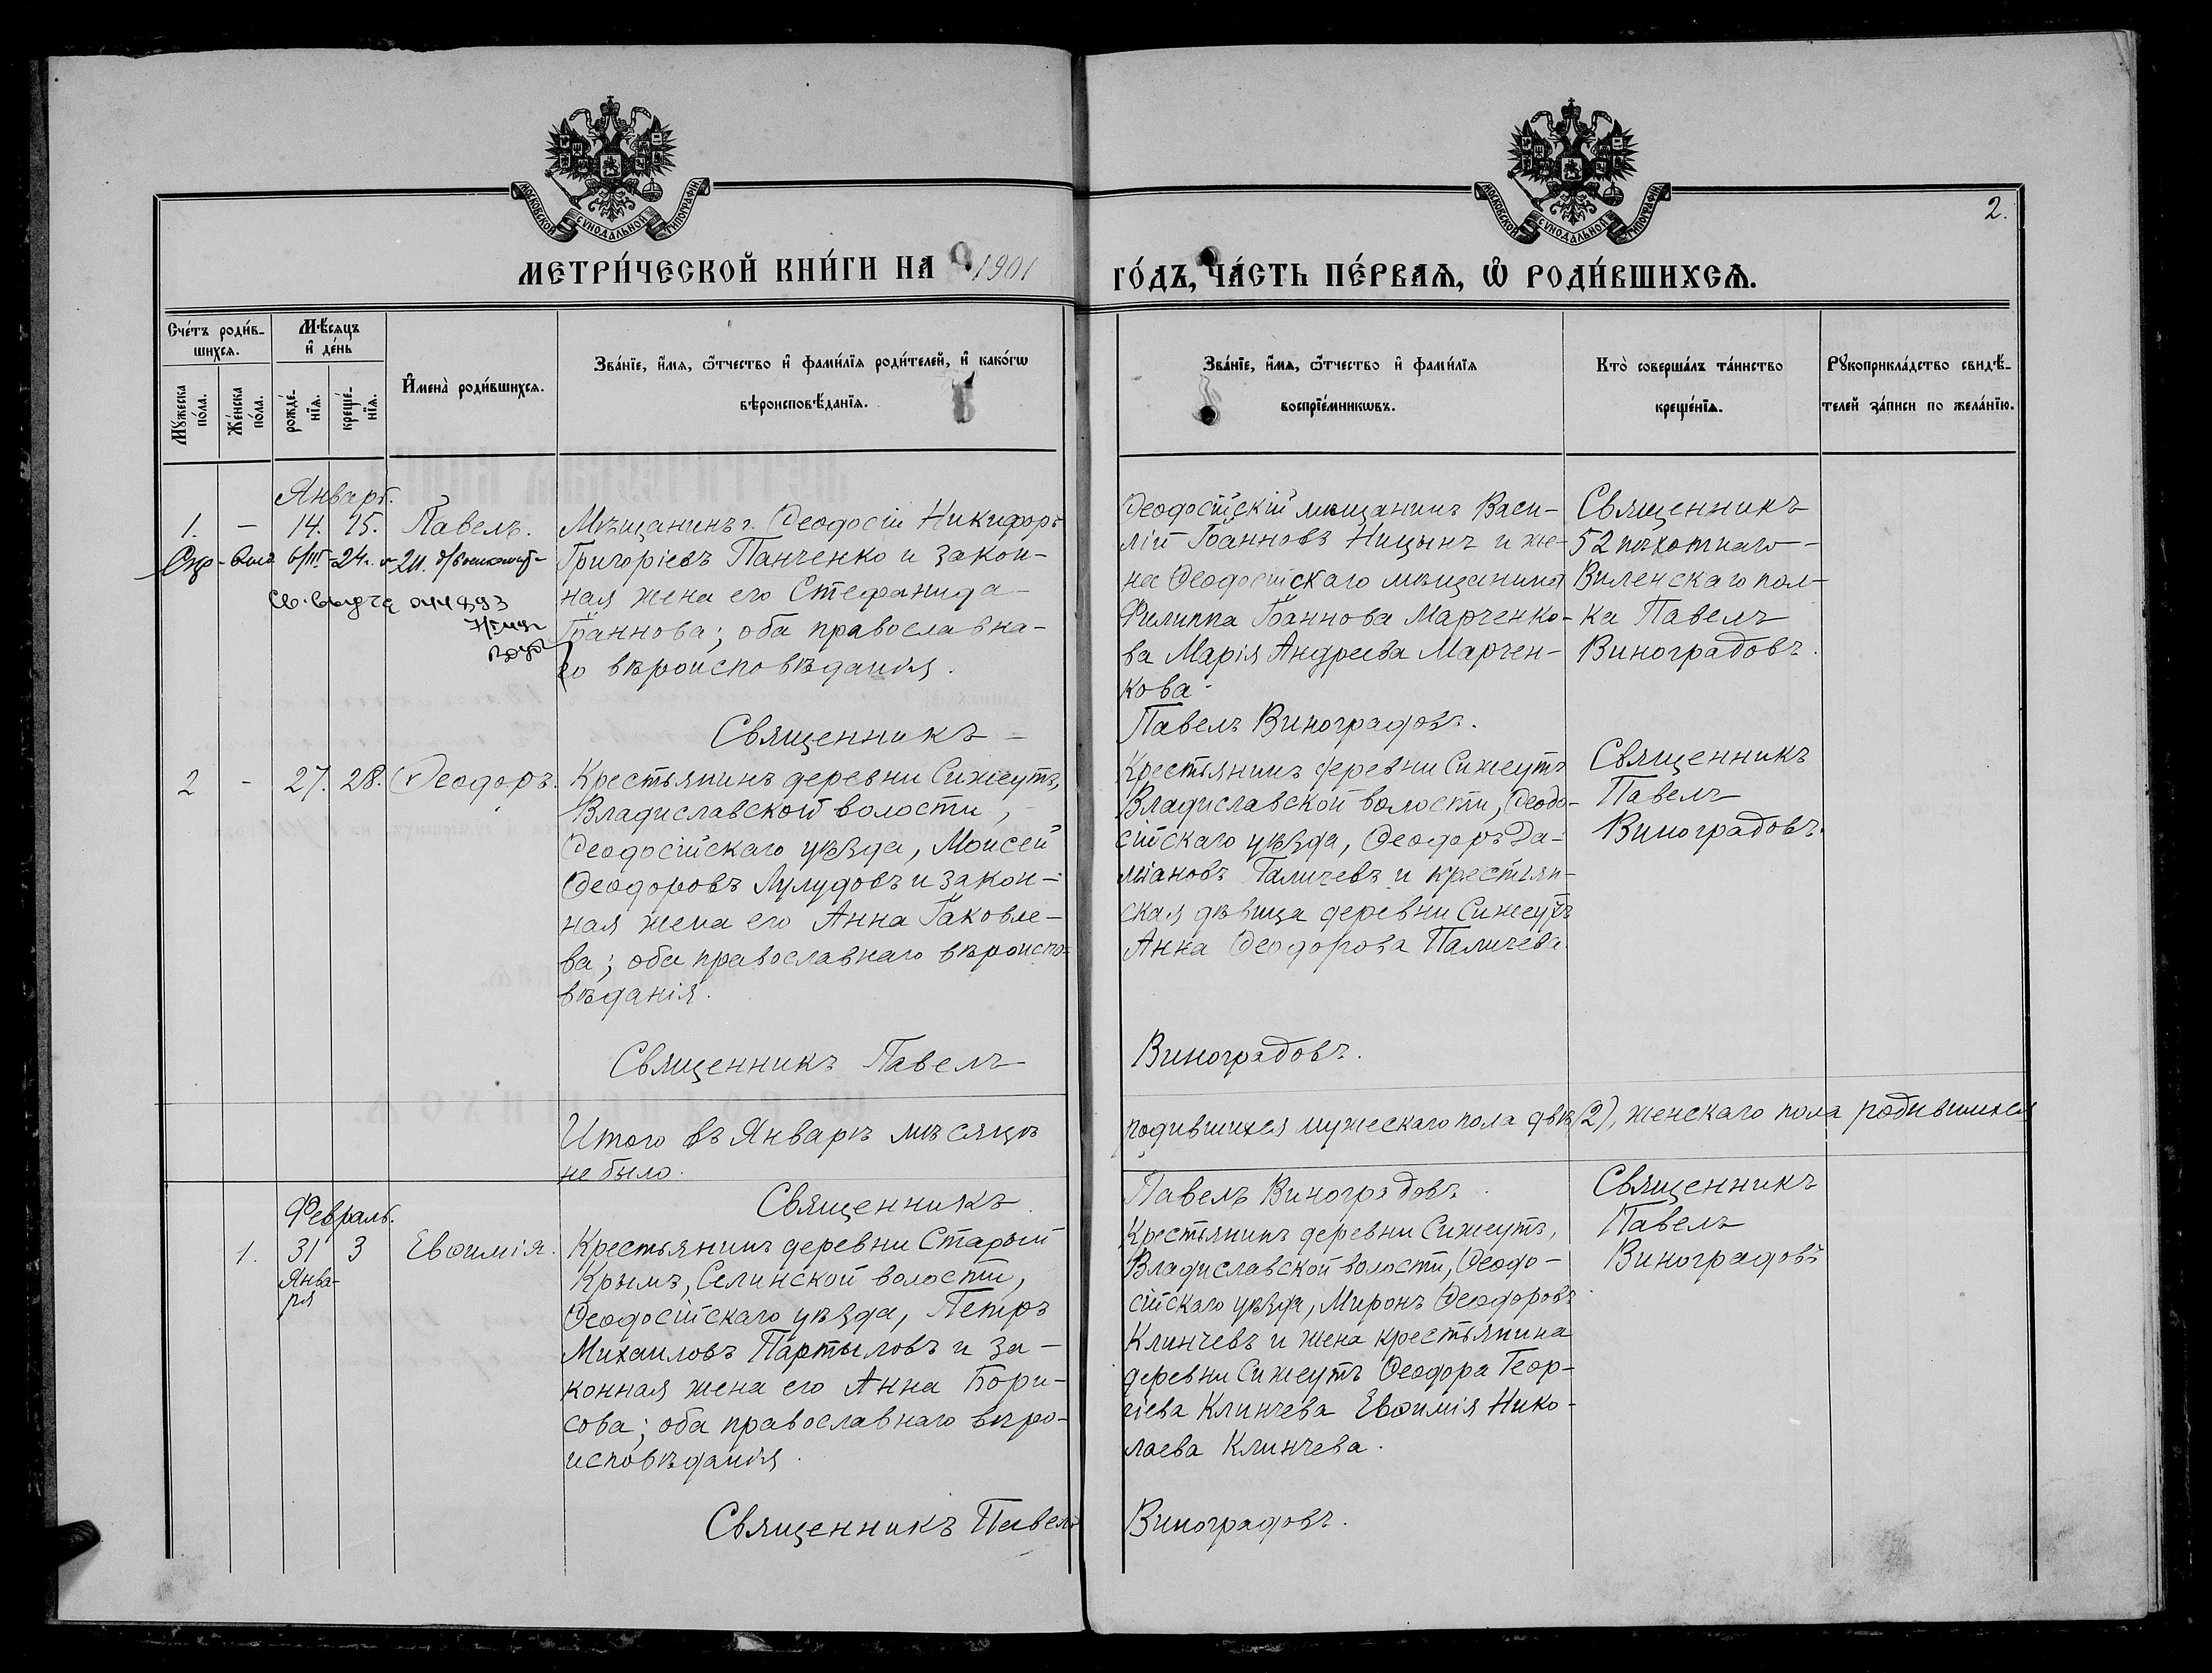 2.
МОСКОВСКОЙ СѴНОДАЛЬНОЙ ТИПОГРАФІИ
МОСКОВСКОЙ СѴНОДАЛЬНОЙ ТИПОГРАФІИ
МЕТРИ́ЧЕСКОЙ КНИ́ГИ НА 1901 ГО́ДЪ, ЧА́СТЬ ПЕ́РВАѦ, Ѡ҆ РОДИ́ВШИХСѦ.
Сче́тъ роди́в-
шихсѧ.
Мꙋ́жеска
по́ла.
Же́нска
по́ла.
Мѣ́сѧцъ
и҆ де́нь
рожде́-
нїѧ.
креще́-
нїѧ.
И҆мена̀ роди́вшихсѧ.
Зва́нїе, и҆́мѧ, ѻ҆́тчество и҆ фами́лїѧ роди́телей, и҆ како́гѡ
вѣроисповѣ́данїѧ.
Зва́нїе, и҆́мѧ, ѻ҆́тчество и҆ фами́лїѧ
воспрїе́мникѡвъ.
Кто̀ соверша́лъ та́инство
креще́нїѧ.
Рꙋкоприкла́дство свидѣ́-
телей за́писи по жела́нїю.
Январь.
1. – 14. 15. Павелъ.
Мѣщанинъ г. Ѳеодосіи Никифоръ
Григоріевъ Панченко и закон-
ная жена его Стефанида
Іоаннова; оба православна-
го вѣроисповѣданія.
Священникъ
Ѳеодосійскій мѣщанинъ Васи-
лій Іоанновъ Ницынъ и же-
на Ѳеодосійскаго мѣщанина
Филиппа Іоаннова Марченко-
ва Марія Андреева Марчен-
кова.
Павелъ Виноградовъ.
Священникъ
52 пѣхотнаго
Виленскаго пол-
ка Павелъ
Виноградовъ.
2 – 27. 28. Ѳеодоръ.
Крестьянинъ деревни Сижеутъ,
Владиславской волости,
Ѳеодосійскаго уѣзда, Моисей
Ѳеодоровъ Лулудовъ и закон-
ная жена его Анна Іаковле-
ва; оба православнаго вѣроиспо-
вѣданія.
Священникъ Павелъ
Крестьянинъ деревни Сижеутъ
Владиславской волости, Ѳеодо-
сійскаго уѣзда, Ѳеодоръ Да-
міановъ Паличевъ и крестьян-
ская дѣвица деревни Сижеутъ
Анна Ѳеодорова Паличева.
Виноградовъ.
Священникъ
Павелъ
Виноградовъ.
Итого въ Январѣ мѣсяцѣ родившихся мужескаго пола двѣ (2), женскаго пола родившихся
не было.
Священникъ
Павелъ Виноградовъ.
Февраль.
1. 31 3 Евѳимія.
Янва-
ря
Крестьянинъ деревни Старый
Крымъ, Селинской волости,
Ѳеодосійскаго уѣзда, Петръ
Михаиловъ Партыловъ и за-
конная жена его Анна Бори-
сова; оба православнаго вѣро-
исповѣданія.
Священникъ Павелъ
Крестьянинъ деревни Сижеутъ,
Владиславской волости, Ѳеодо-
сійскаго уѣзда, Миронъ Ѳеодоровъ
Клинчевъ и жена крестьянина
деревни Сижеутъ Ѳеодора Геор-
гіева Клинчева Евѳимія Нико-
лаева Клинчева.
Виноградовъ.
Священникъ
Павелъ
Виноградовъ